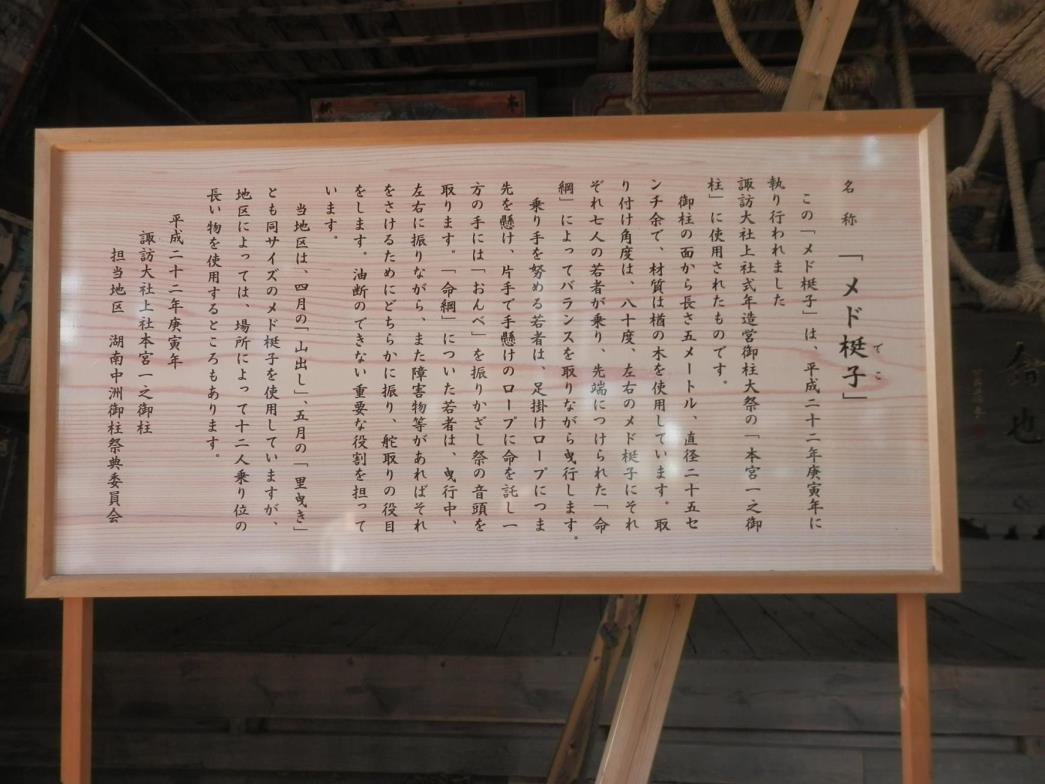 名称 「メド梃子」
でこ
この「メド梃子」は、平成二十二年庚寅年に
執り行われました
諏訪大社上社式年造営御柱大祭の「本宮一之御
柱」に使用されたものです。
御柱の面から長さ五メートル、直径二十五セ
ンチ余で、材質は楢の木を使用しています。取
り付け角度は、八十度、左右のメド梃子にそれ
ぞれ七人の若者が乗り、先端につけられた「命
綱」によってバランスを取りながら曳行します。
乗り手を努める若者は、足掛けロープにつま
先を懸け、片手で手懸けのロープに命を託し一
方の手には「おんべ」を振りかざし祭の音頭を
取ります。「命綱」についた若者は、曳行中、
左右に振りながら、また障害物等があればそれ
をさけるためにどちらかに振り、舵取りの役目
をします。油断のできない重要な役割を担って
います。
当地区は、四月の「山出し」、五月の「里曳き」
とも同サイズのメド梃子を使用していますが、
地区によっては、場所によって十二人乗り位の
長い物を使用するところもあります。
平成二十二年庚寅年
諏訪大社上社本宮一之御柱
担当地区 湖南中洲御柱祭典委員会